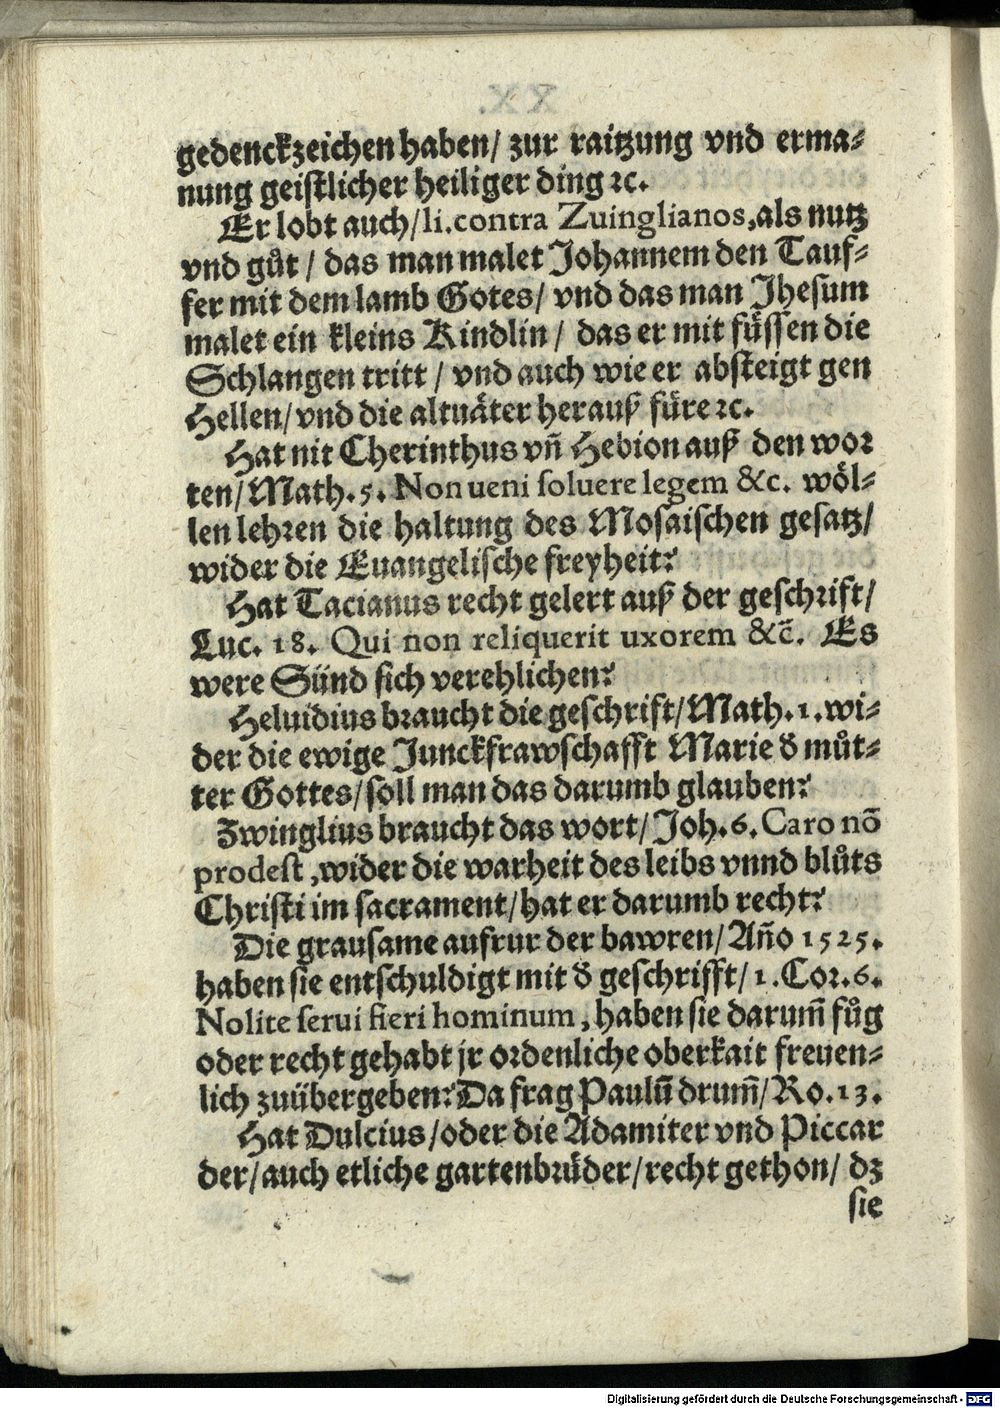 gedenckzeichen haben/ zur raitzung vnd erma⸗
nung geistlicher heiliger ding ꝛc.
Er lobt auch/li.contra Zuinglianos,als nutz
vnd gůt / das man malet Johannem den Tauf⸗
fer mit dem lamb Gotes/ vnd das man Jhesum
malet ein kleins Kindlin/ das er mit füssen die
Schlangen tritt / vnd auch wie er absteigt gen
Hellen/vnd die altuäter herauß füre ꝛc.
Hat nit Cherinthus vñ Hebion auß den wor
ten/Math.5. Non ueni soluere legem &c. wöl⸗
len lehren die haltung des Mosaischen gesatz/
wider die Euangelische freyheit?
Hat Tacianus recht gelert auß der geschrift/
Luc. 18. Qui non reliquerit uxorem &c̃. Es
were Sünd sich verehlichen?
Heluidius braucht die geschrift/Math.1.wi⸗
der die ewige Junckfrawschafft Marie đ můt⸗
ter Gottes/soll man das darumb glauben?
Zwinglius braucht das wort/Joh.6.Caro nõ
prodest,wider die warheit des leibs vnnd blůts
Christi im sacrament/hat er darumb recht?
Die grausame aufrur der bawren/Año 1525.
haben sie entschuldigt mit đ geschrifft/1.Cor.6.
Nolite serui fieri hominum, haben sie darum̃ fůg
oder recht gehabt jr ordenliche oberkait freuen⸗
lich zuübergeben?Da frag Paulũ drum̃/Ro.13.
Hat Dulcius/oder die Adamiter vnd Piccar
der/auch etliche gartenbrüder/recht gethon/ dz
sie
Digitalisierung gefördert durch die Deutsche Forschungsgemeinschaft - DFG